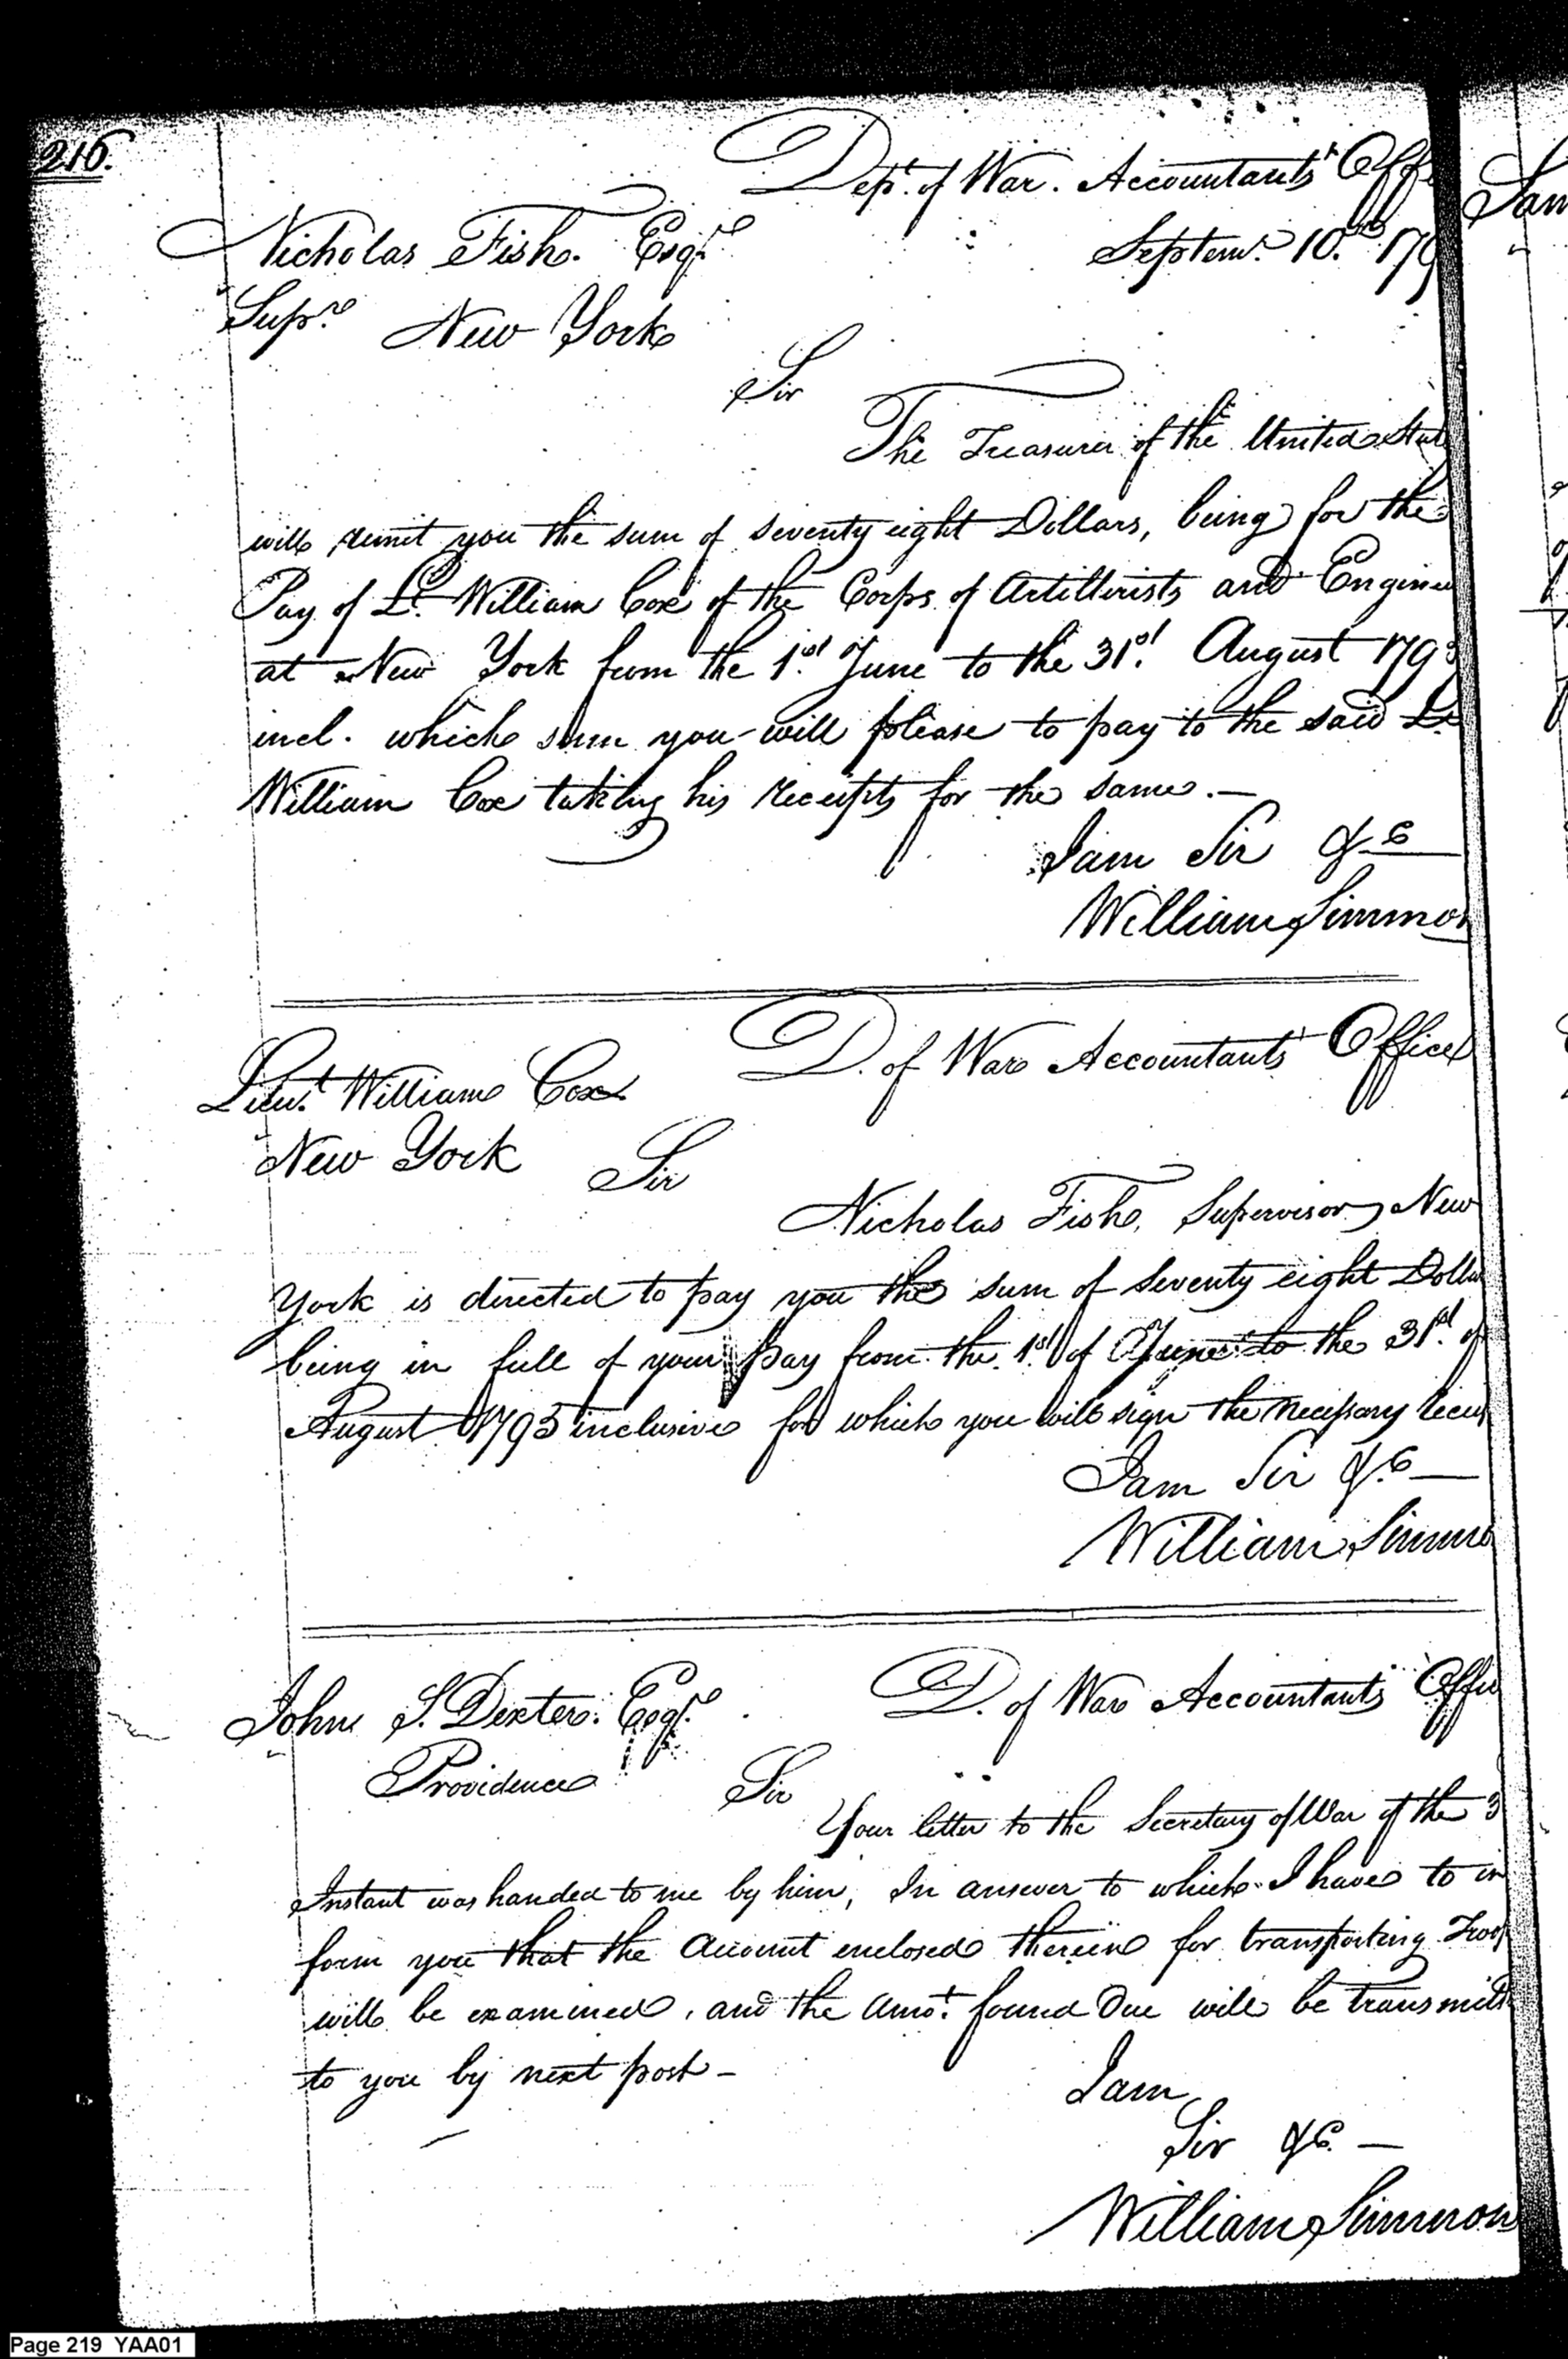 216.
Dept. of War. Accountants Offi
Nicholas Fish. Esqre
Septemr. 10.th 179
Supre New York
Sir
The Treasurer of the United Stat
will remit you the sum of seventy eight Dollars, being for the
Pay of Lt. William Cox of the Corps of Artillerists and Enginee
at New York from the 1st. June to the 31st. August 1795
incl. which sum you will please to pay to the said Lt.
William Cox taking his receipts for the same.—
I am Sir &c
William Simmon
Lieut. William Cox
D. of War Accountants Office
New York Sir
Nicholas Fish, Supervisor, New
York is directed to pay you the sum of seventy eight Dolla
being in full of your Pay from the 1st. of June to the 31st. of
August 1795 inclusive for which you will sign the necessary recei
I am Sir &c—
William Simmo
John S. Dexter. Esqre
D. of War Accountants Offi
Providence Sir
Your letter to the Secretary of War of the 3
Instant was handed to me by him, In answer to which I have to in
form you that the Account enclosed therein for transporting Troop
will be examined, and the Amot. found Due will be transmitt
to you by next post—
I am
Sir &c.—
William Simmons
Page 219 YAA01